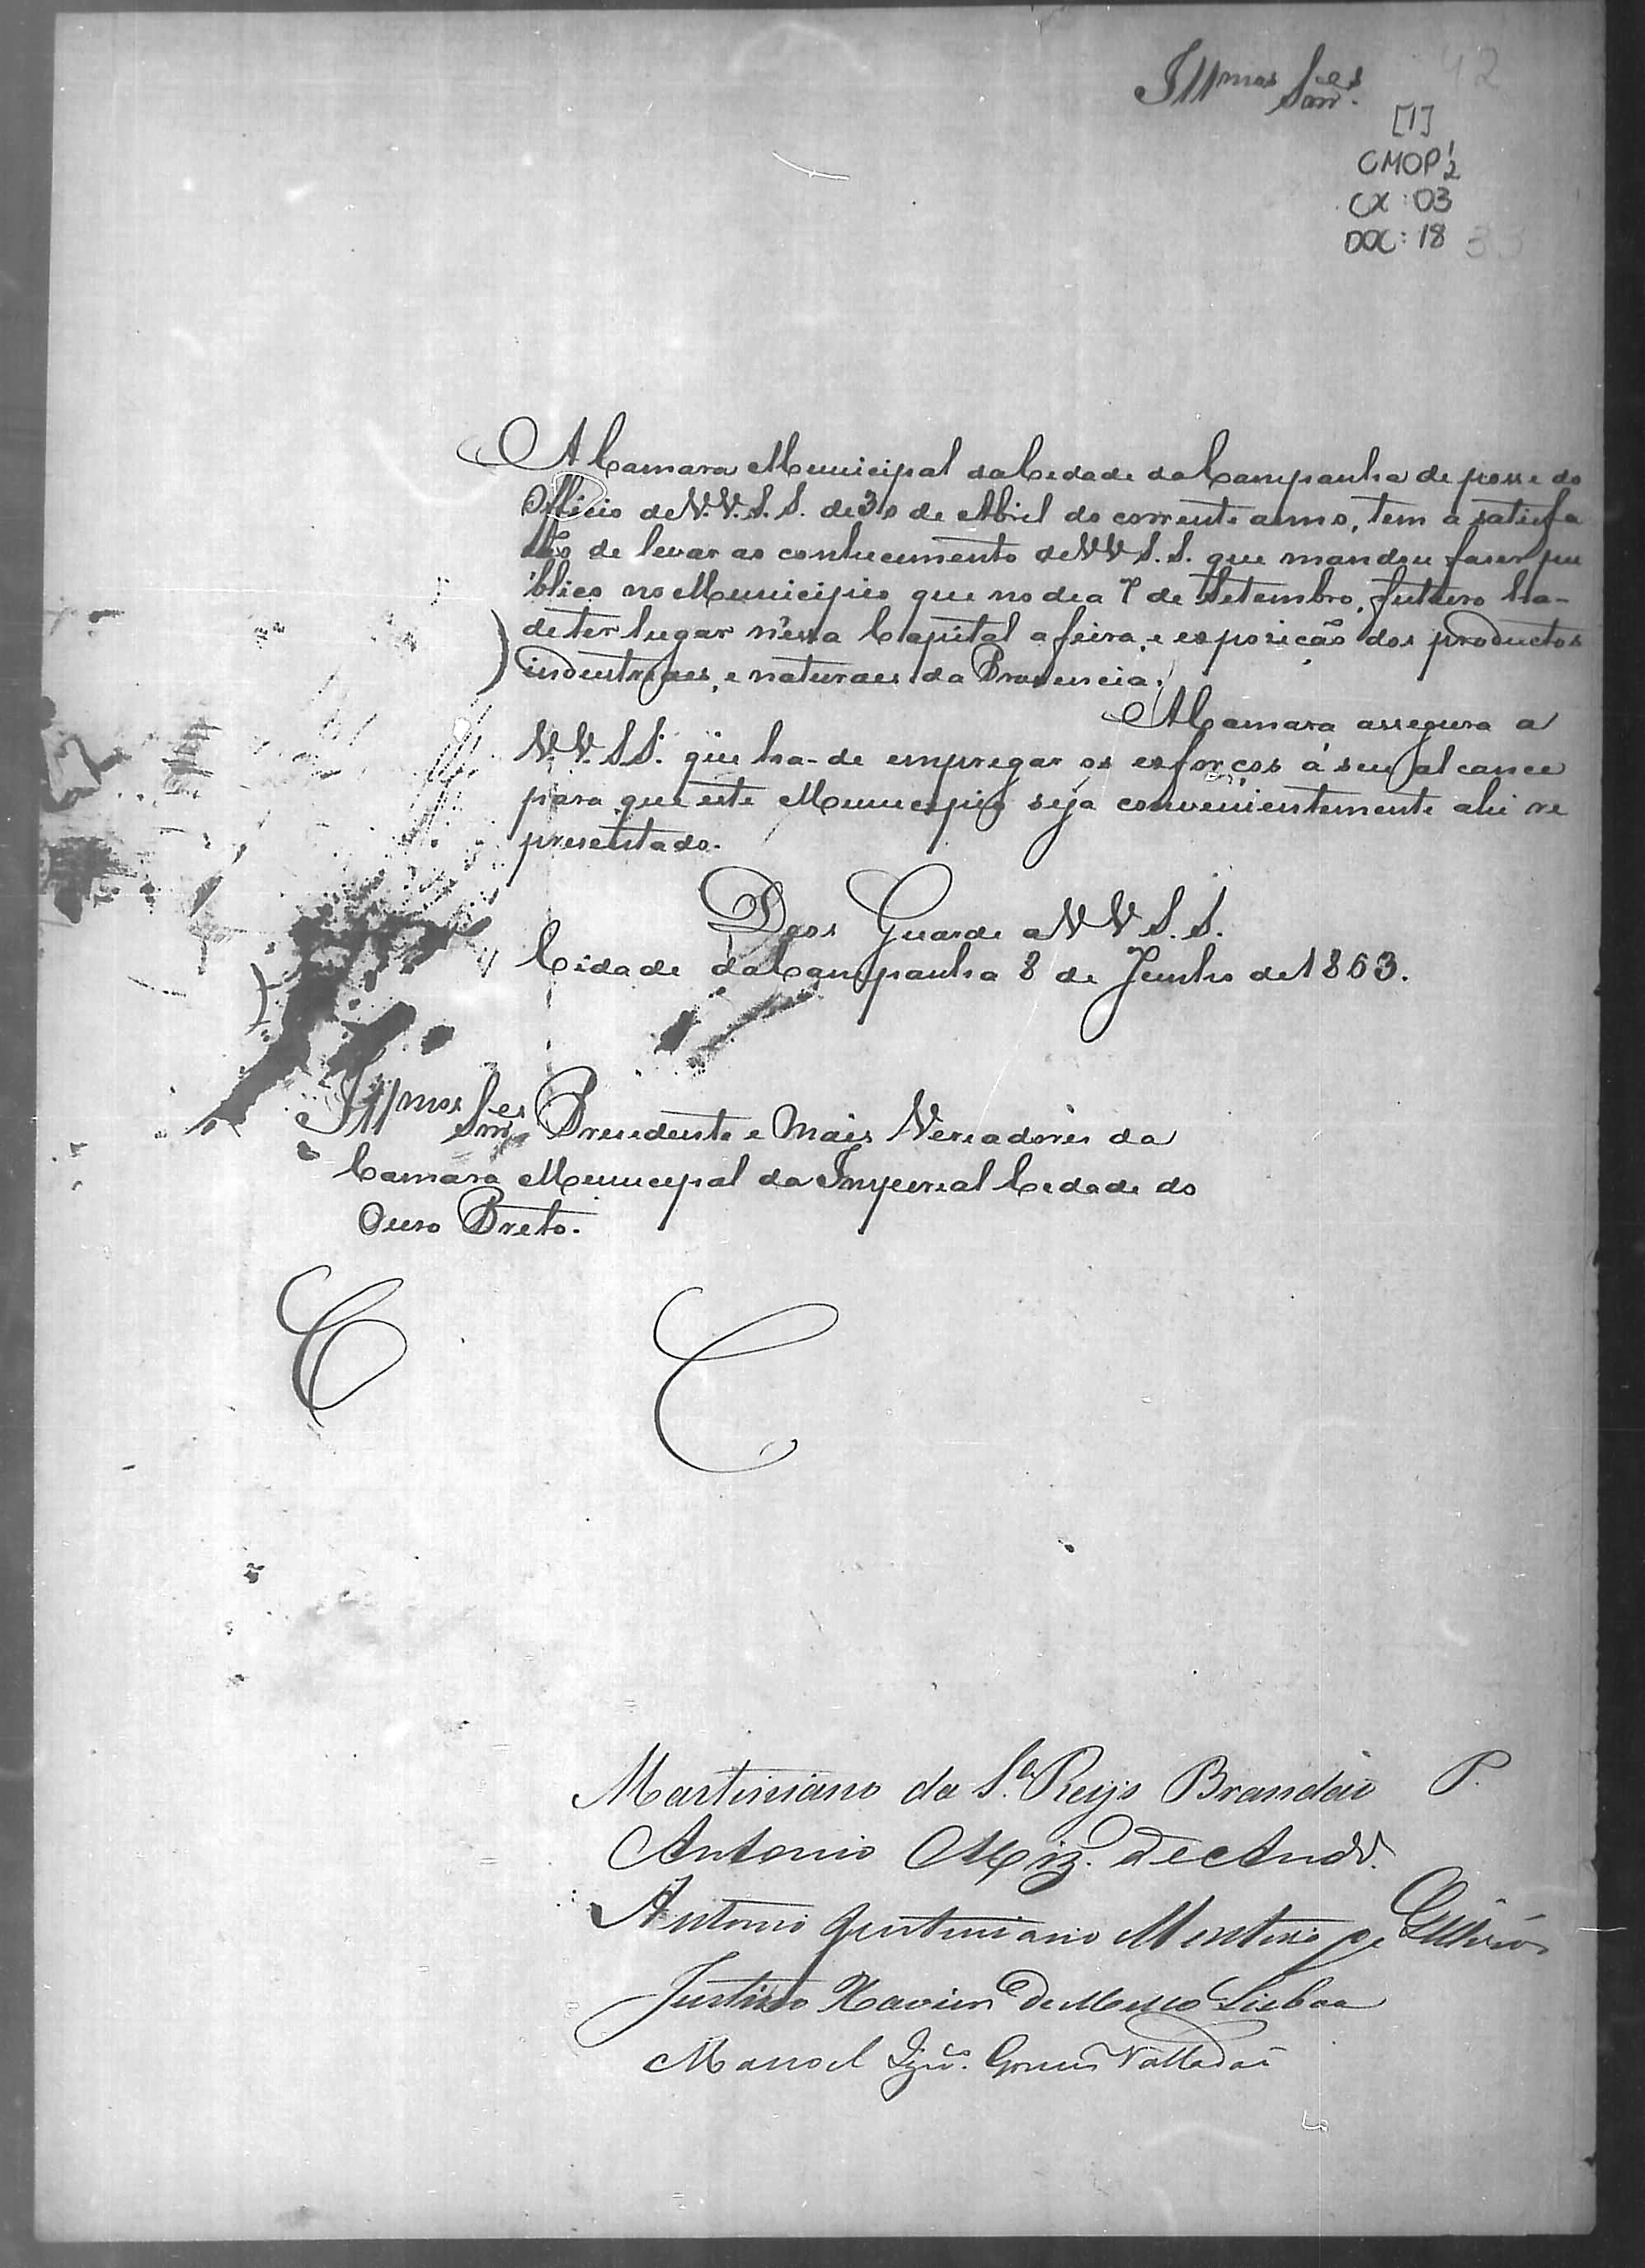 Illmos Snres
42
[1]
CMOP 1/2
CX: 03
DOC: 18
33
A Camara Municipal da Cidade da Campanha de posse do
Officio de V.V.S.S. de 30 de Abril do corrente anno, tem a satisfa
ção de levar ao conhecimento de VV S.S. que mandou faser pu
blico no Municipio que no dia 7 de Setembro, futuro ha-
de ter lugar n'essa Capital a feira, e exposicão dos productos
industriaes, e naturaes da Provincia.
A Camara assegura a
V.V.S.S. que ha-de empregar os esforços á seu alcance
para que este Municipio seja convenientemente ahi re
presentado.
Deos Guarde a VV S.S.
Cidade da Campanha 8 de Junho de 1863.
Illmos Snres Presidente e Mais Vereadores da
Camara Municipal da Imperial Cidade do
Ouro Preto.
Martiniano da Sª Reys Brandão P.
Antonio Miz. de Andr.
Antonio Justiniano Monteiro de
Justino Xavier de Mello Lisboa
Manoel Igco. Gomes Valladão